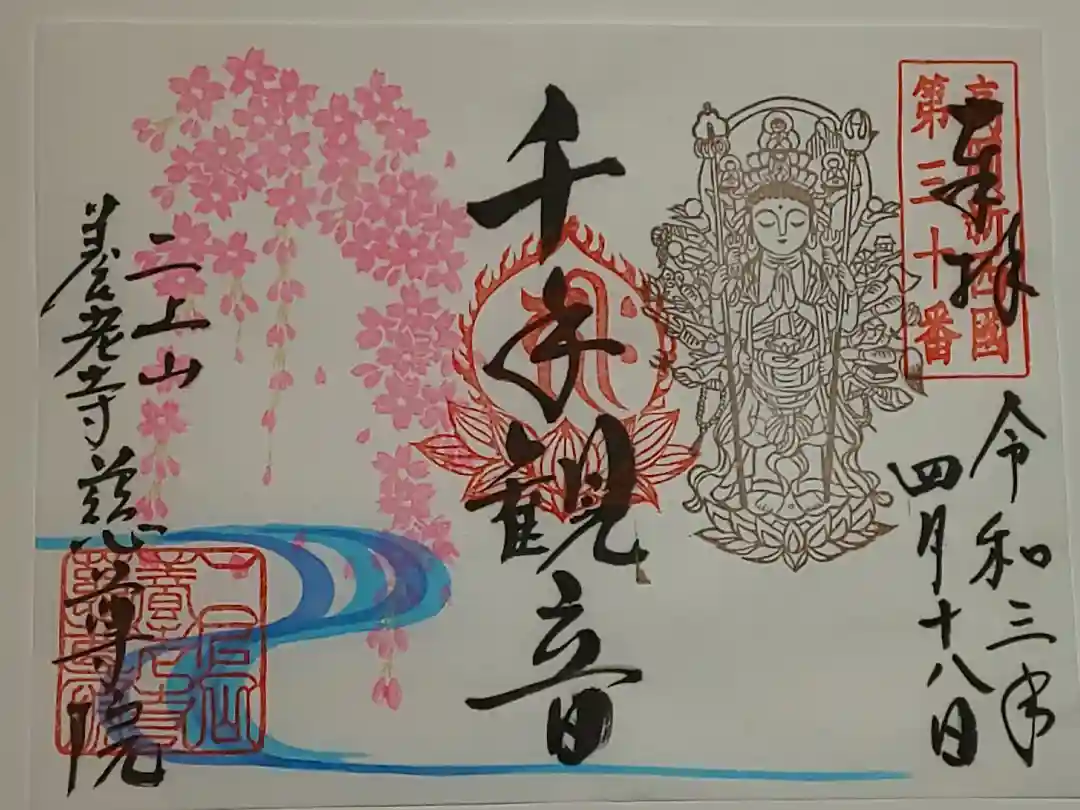 奉拝
高岡新西國
第三十番
令和三年
四月十八日
千手観音
二上山
養老寺慈尊院